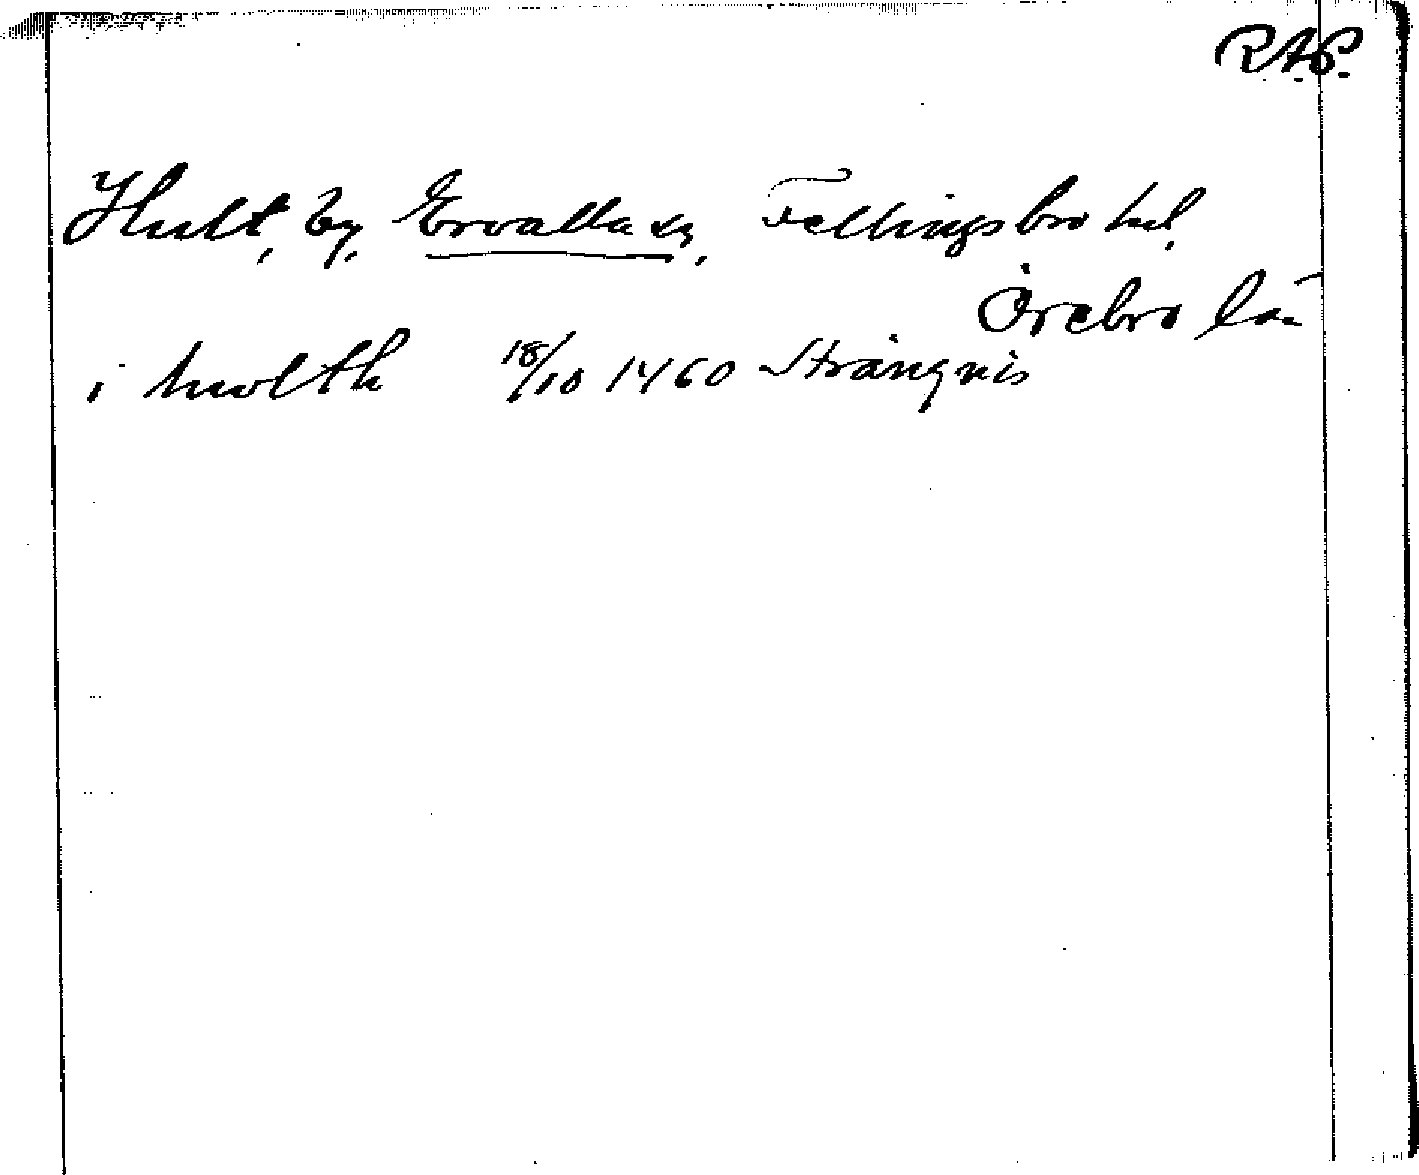 R.A.P.
Hult, by, Ervalla sn, Fellingsbro hd,
Örebro län
i hwlth 18/10 1460 Strängnäs